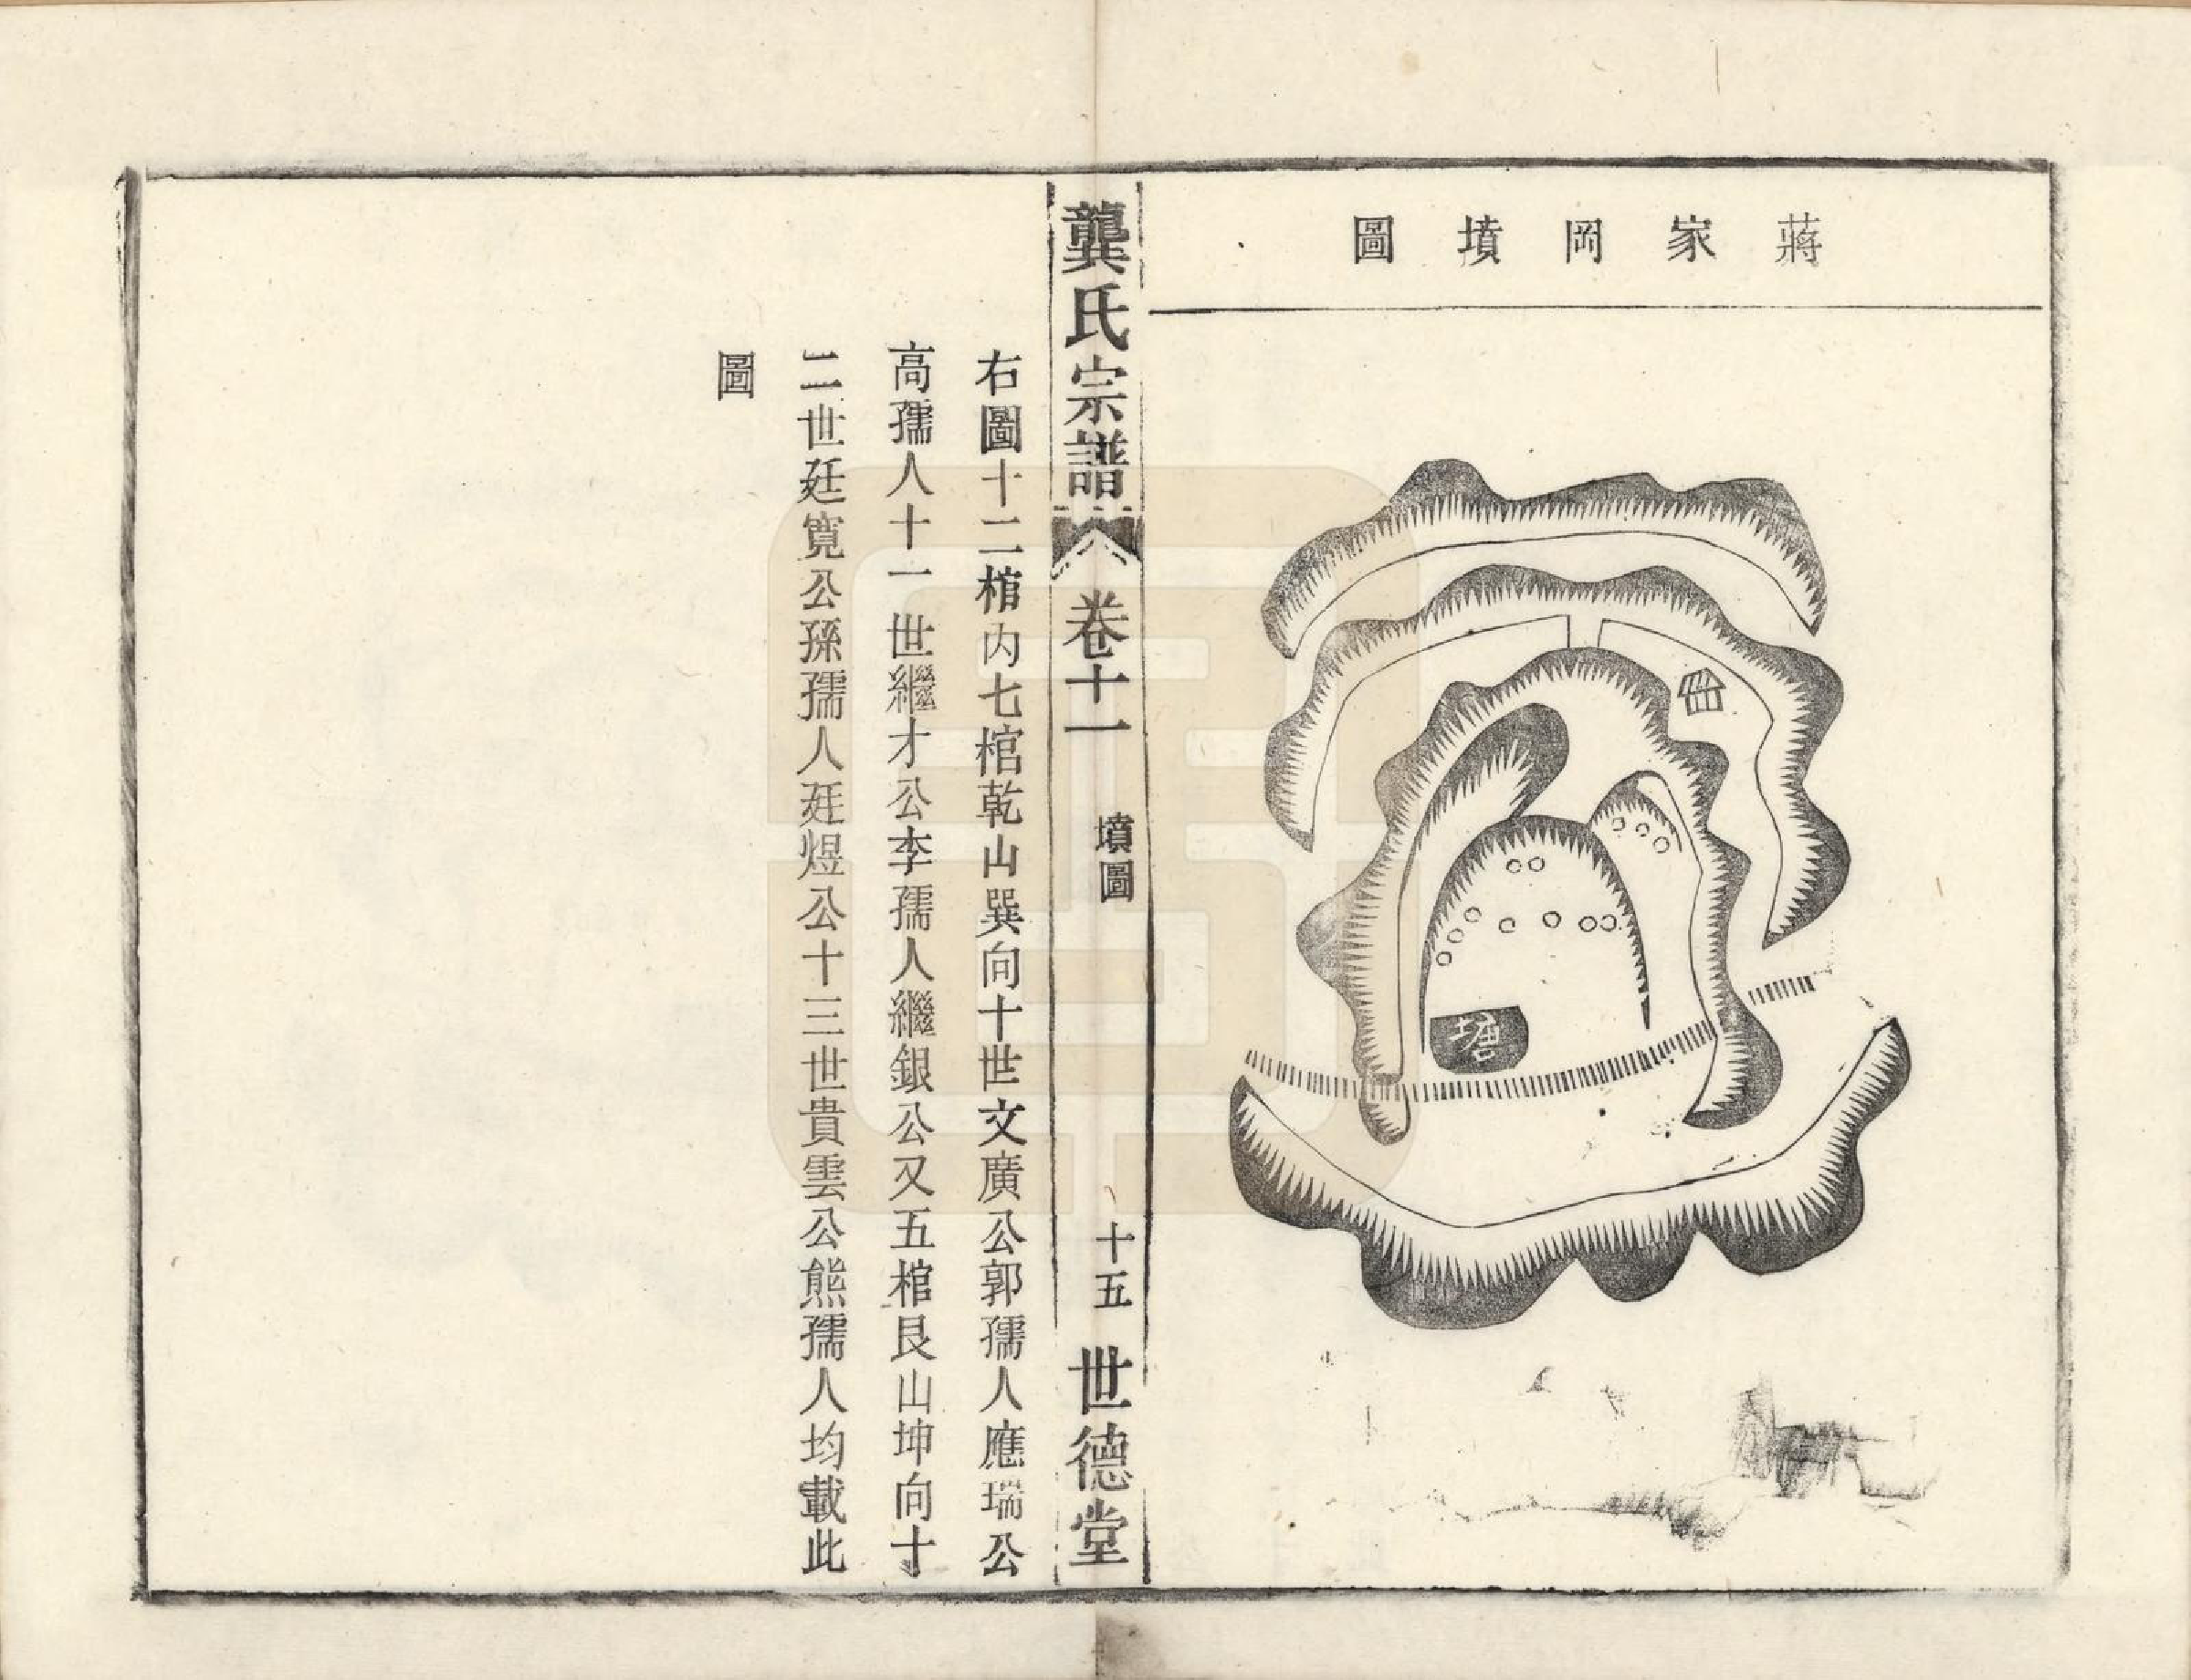 蔣家岡墳圖
塘
龔氏宗譜
卷十一
墳圖
十五
世德堂
右圖十二棺内七棺乾山巽向十世文廣公郭孺人應瑞公
高孺人十一世繼才公李孺人繼銀公又五棺艮山坤向十
二世廷寬公孫孺人廷煜公十三世貴雲公熊孺人均載此
圖